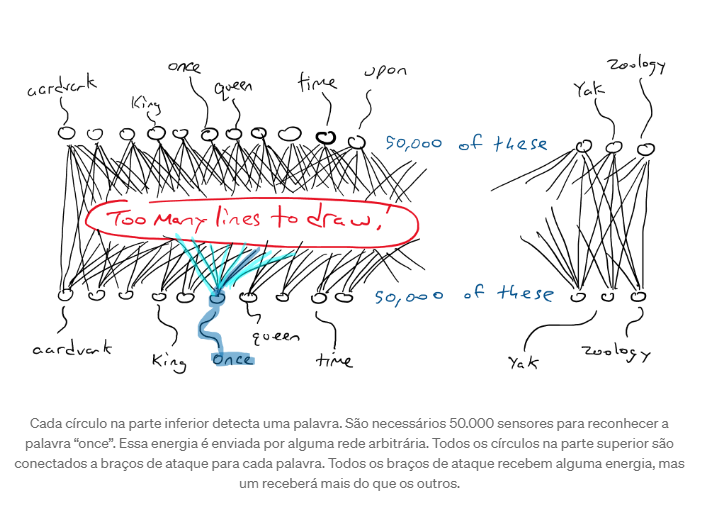 aardvark King once queen time upon Yak zoology
50,000 of these
Too Many lines to draw!
50,000 of these
aardvark King once queen time Yak zoology
Cada círculo na parte inferior detecta uma palavra. São necessários 50.000 sensores para reconhecer a
palavra “once”. Essa energia é enviada por alguma rede arbitrária. Todos os círculos na parte superior são
conectados a braços de ataque para cada palavra. Todos os braços de ataque recebem alguma energia, mas
um receberá mais do que os outros.